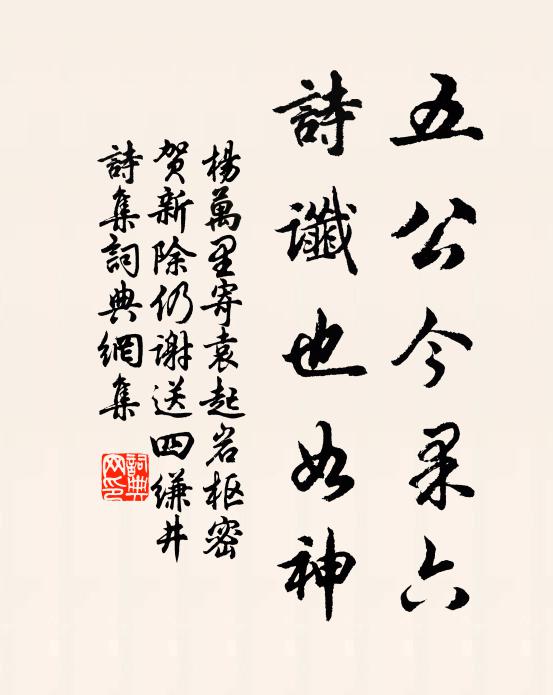 五公今果六
詩讖也如神
楊萬里寄袁起岩枢密
贺新除仍谢送四縑井
詩集詞典網集
詞典
网印